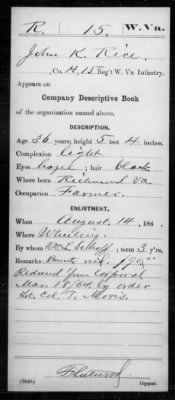 R. 15. W. Va.
John R. Rice,
, Co. H, 15 Reg't W. Va Infantry.
Appears on
Company Descriptive Book
of the organization named above.
DESCRIPTION.
Age 36 years; height 5 feet 4 inches.
Complexion Light
Eyes hazel; hair black
Where born Richmond Va.
Occupation Farmer.
ENLISTMENT.
When August 14, 186 .
Where Wheeling.
By whom Wm. L. ; term 3 y'rs.
Remarks: Bounty
Reduced from Corporal
Mar 18/64 by order
Lt. Col. T. Morris.
Copyist.